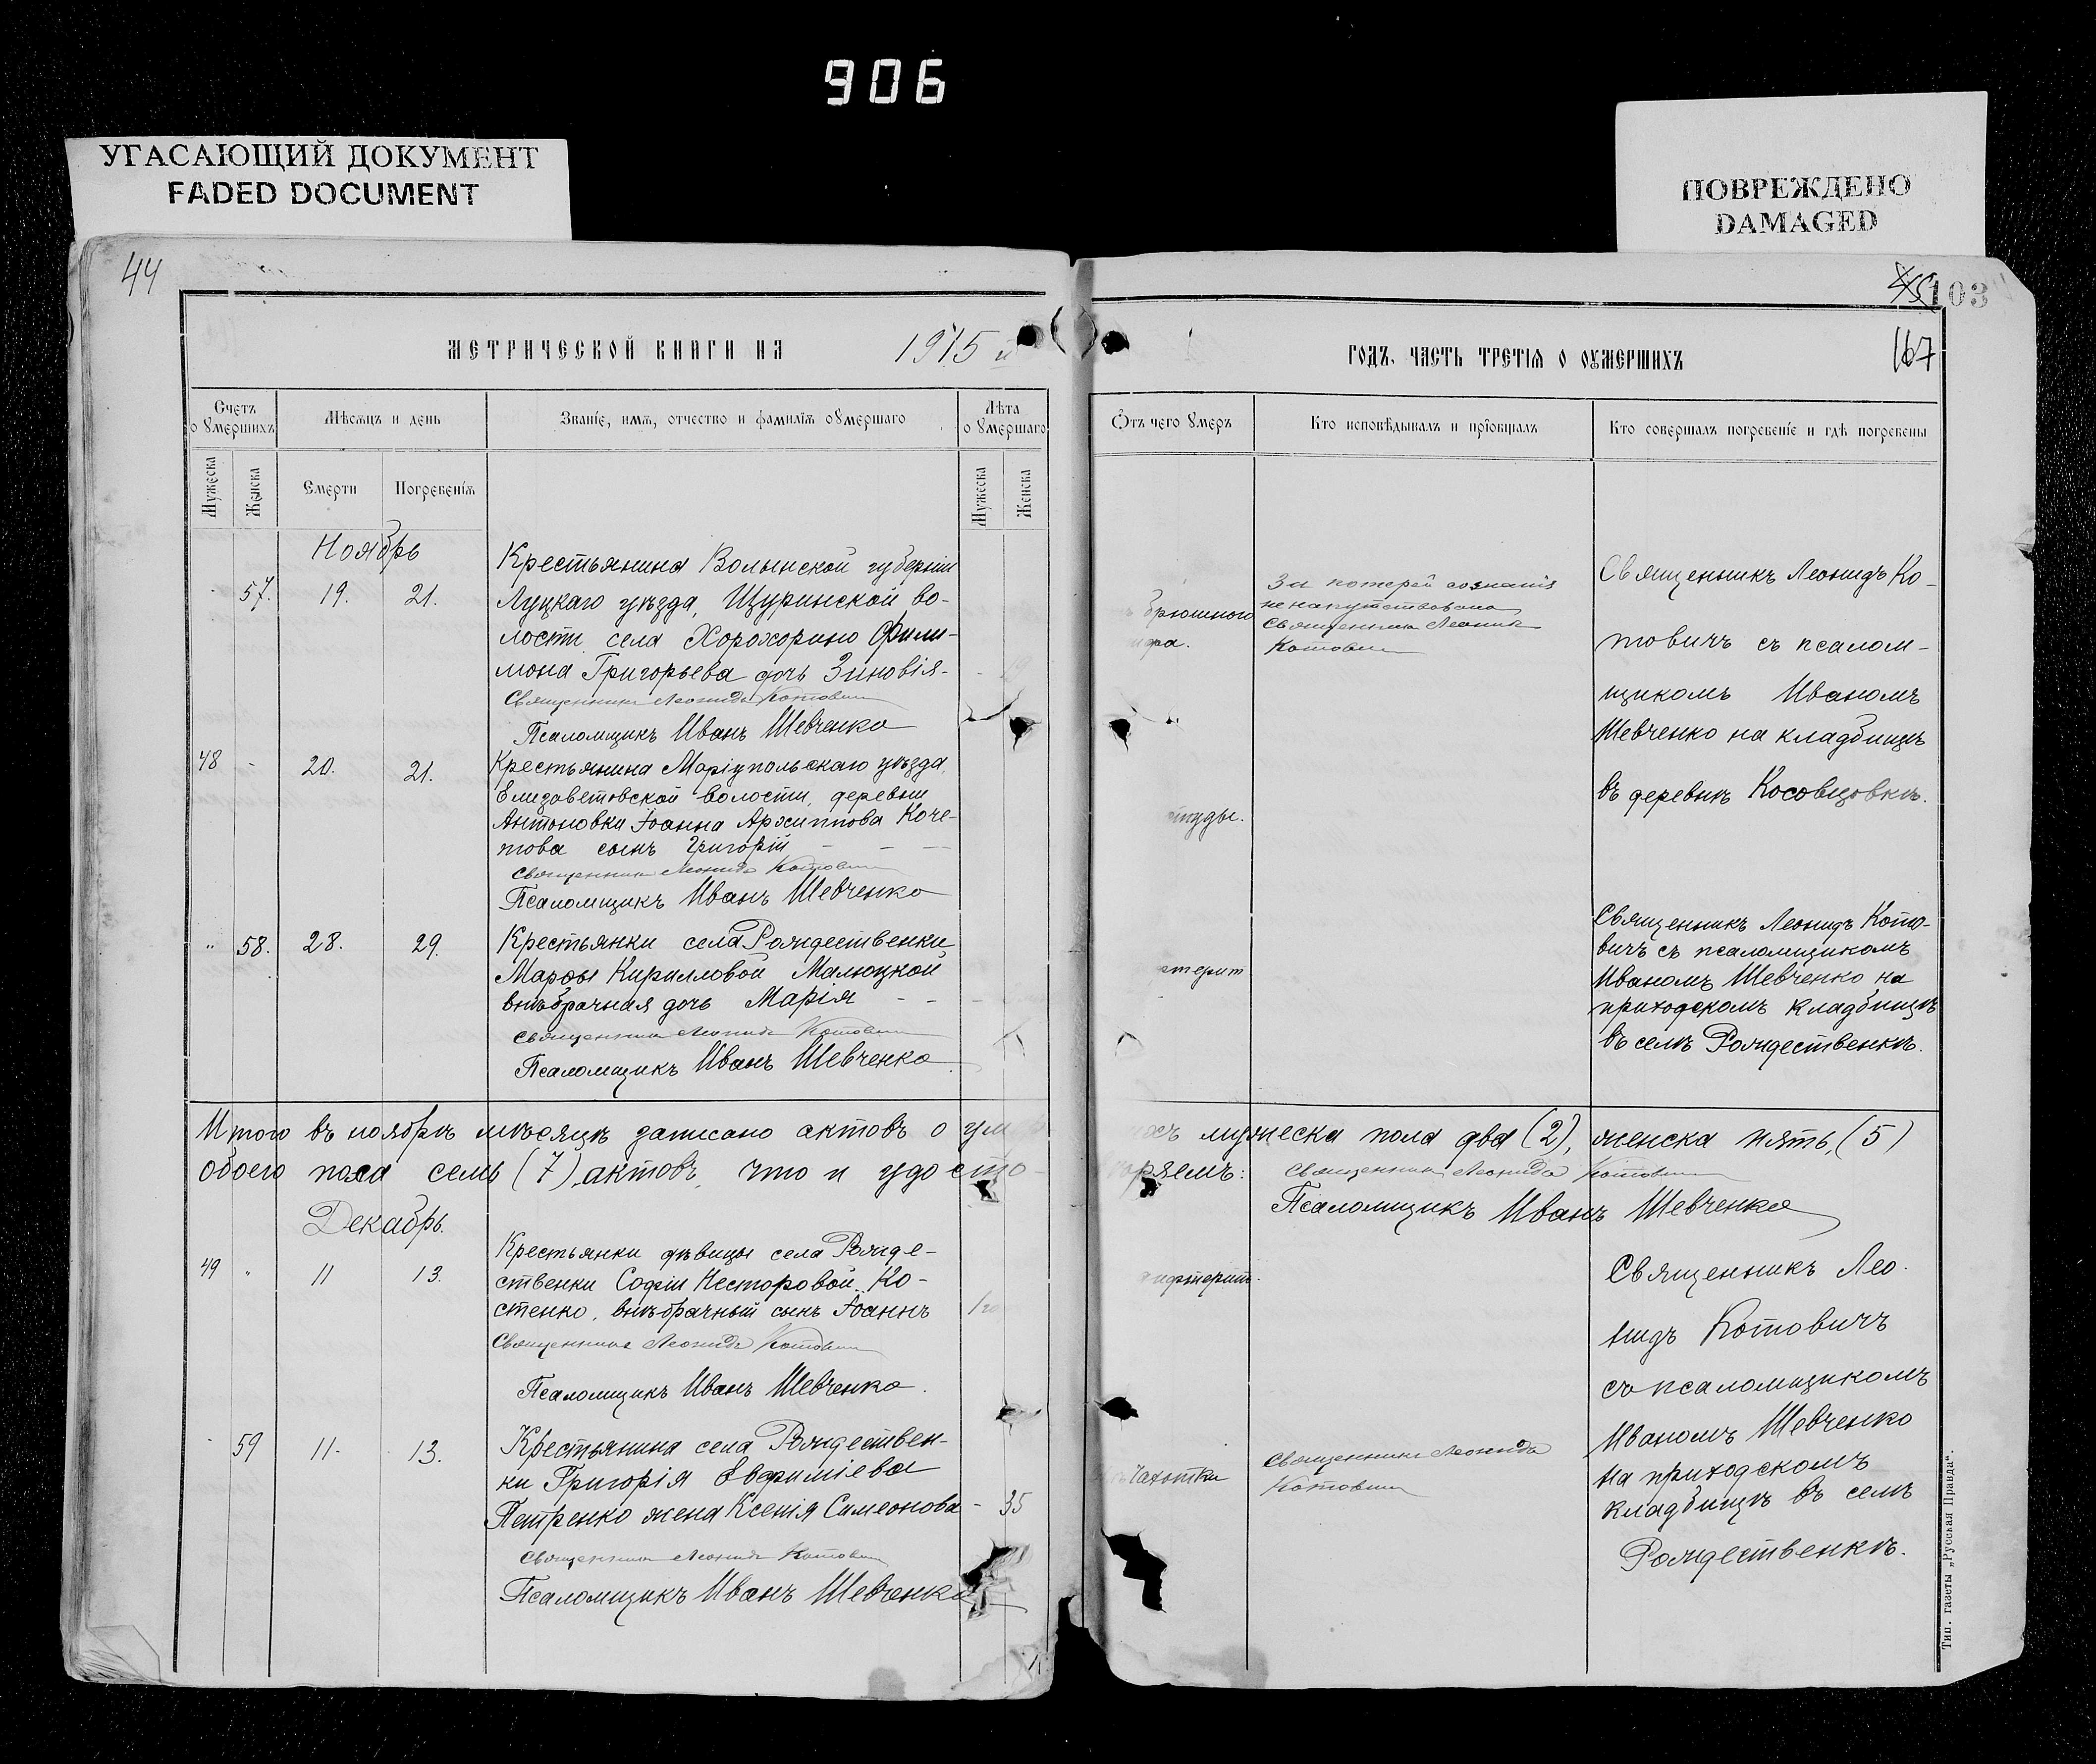 906
УГАСАЮЩИЙ ДОКУМЕНТ
FADED DOCUMENT
ПОВРЕЖДЕНО
DAMAGED
44
103
167
МЕТРИЧЕСКОЙ КНИГИ НА 1915 й
ГОДЪ, ЧАСТЬ ТРЕТІЯ О ОУМЕРШИХЪ
Счетъ оумершихъ
Мѣсяцъ и день
Званіе, имя, отчество и фамилія оумершаго
Лѣта оумершаго
Отъ чего умеръ
Кто исповѣдывалъ и пріобщалъ
Кто совершалъ погребеніе и гдѣ погребены
Мужеска
Женска
Смерти
Погребенія
Мужеска
Женска
Ноябрь
57. 19. 21.
Крестьянина Волынской губерніи
Луцкаго уѣзда, Щуринской во-
лости, села Хорохорино Фили-
мона Григорьева дочь Зиновія - 19
Священникъ Леонидъ Котовичъ
Псаломщикъ Иванъ Шевченко
брюшного
За потерей сознанія
не напутствована
Священникъ Леонидъ
Котовичъ
Священникъ Леонидъ Ко-
товичъ съ псалом-
щикомъ Иваномъ
Шевченко на кладбищѣ
въ деревнѣ Косовцовкѣ.
48 - 20. 21.
Крестьянина Маріупольскаго уѣзда,
Елизаветовской волости, деревни
Антоновки Іоанна Архиппова Коче-
това сынъ Григорій - - -
Священникъ Леонидъ Котовичъ
Псаломщикъ Иванъ Шевченко
" 58. 28. 29.
Крестьянки села Рождественки
Марфы Кирилловой Малюцкой
внѣбрачная дочь Марія - -
Священникъ Леонидъ Котовичъ
Псаломщикъ Иванъ Шевченко
Священникъ Леонидъ Кото-
вичъ съ псаломщикомъ
Иваномъ Шевченко на
приходскомъ кладбищѣ
въ селѣ Рождественкѣ.
Итого въ ноябрѣ мѣсяцѣ записано актовъ о ум
мужеска пола два (2), женска пять, (5)
обоего пола семь (7) актовъ, что и удосто-
ряемъ: Священникъ Леонидъ Котовичъ
Псаломщикъ Иванъ Шевченко
Декабрь.
49 " 11 13.
Крестьянки дѣвицы села Рожде-
ственки Софіи Несторовой Ко-
стенко, внѣбрачный сынъ Іоаннъ
Священникъ Леонидъ Котовичъ
Псаломщикъ Иванъ Шевченко.
дифтерит.
Священникъ Лео-
нидъ Котовичъ
съ псаломщикомъ
Иваномъ Шевченко
на приходскомъ
кладбищѣ въ селѣ
Рождественкѣ.
- 59 11. 13.
Крестьянина села Рождествен-
ки Григорія Евфиміева
Петренко жена Ксенія Симеонова - 35
Священникъ Леонидъ Котовичъ
Псаломщикъ Иванъ Шевченко
чахотки
Священникъ Леонидъ
Котовичъ
Тип. газеты „Русская Правда“.